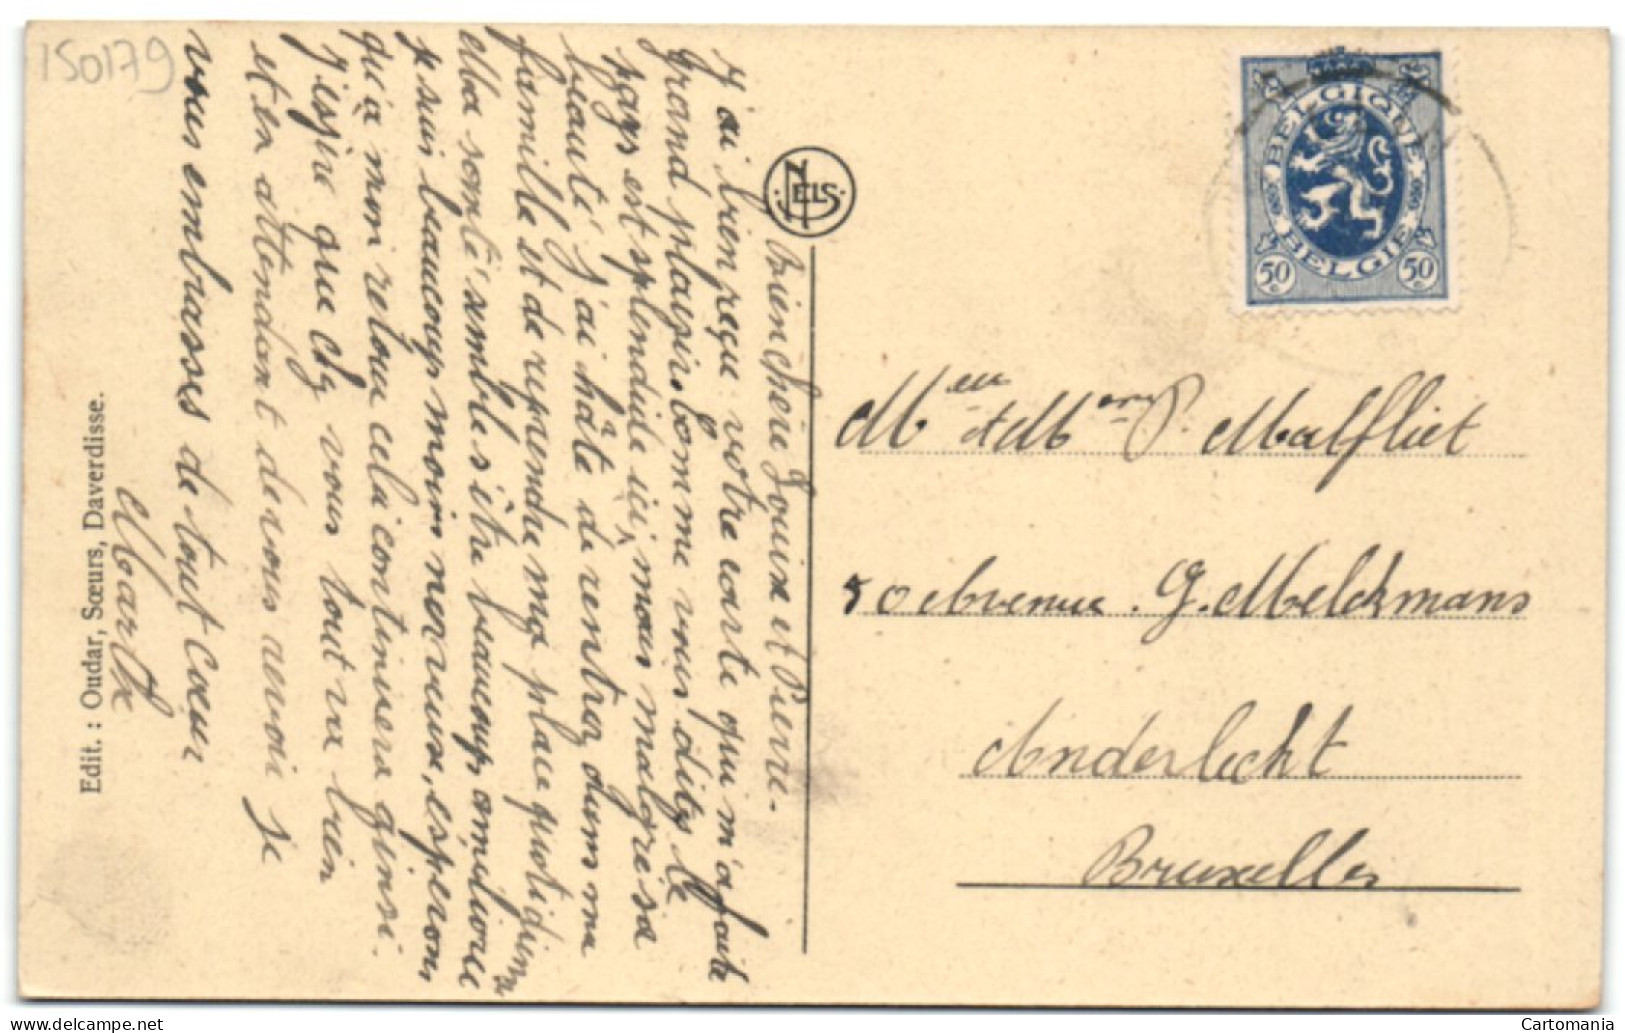 150179
Bien chère Louise et Pierre.
J'ai bien reçu votre carte qui m'a faite
grand plaisir. Comme vous dites le
pays est splendide ici, mais malgré sa
beauté j'ai hâte de rentrer dans ma
famille et de reprendre ma place quotidienne
Ma santé semble s'être beaucoup améliorée
je suis beaucoup moins nerveuse, espérons
qu'à mon retour cela continuera ainsi.
J'espère que chez vous tout va bien
et en attendant de vous revoir je
vous embrasse de tout cœur
Marthe
Edit. : Oudar, Sœurs, Daverdisse.
NELS
BELGIQUE
BELGIE
50 c
50 c
Malfliet
50 Avenue . G. Melckmans
Anderlecht
Bruxelles
Cartomania